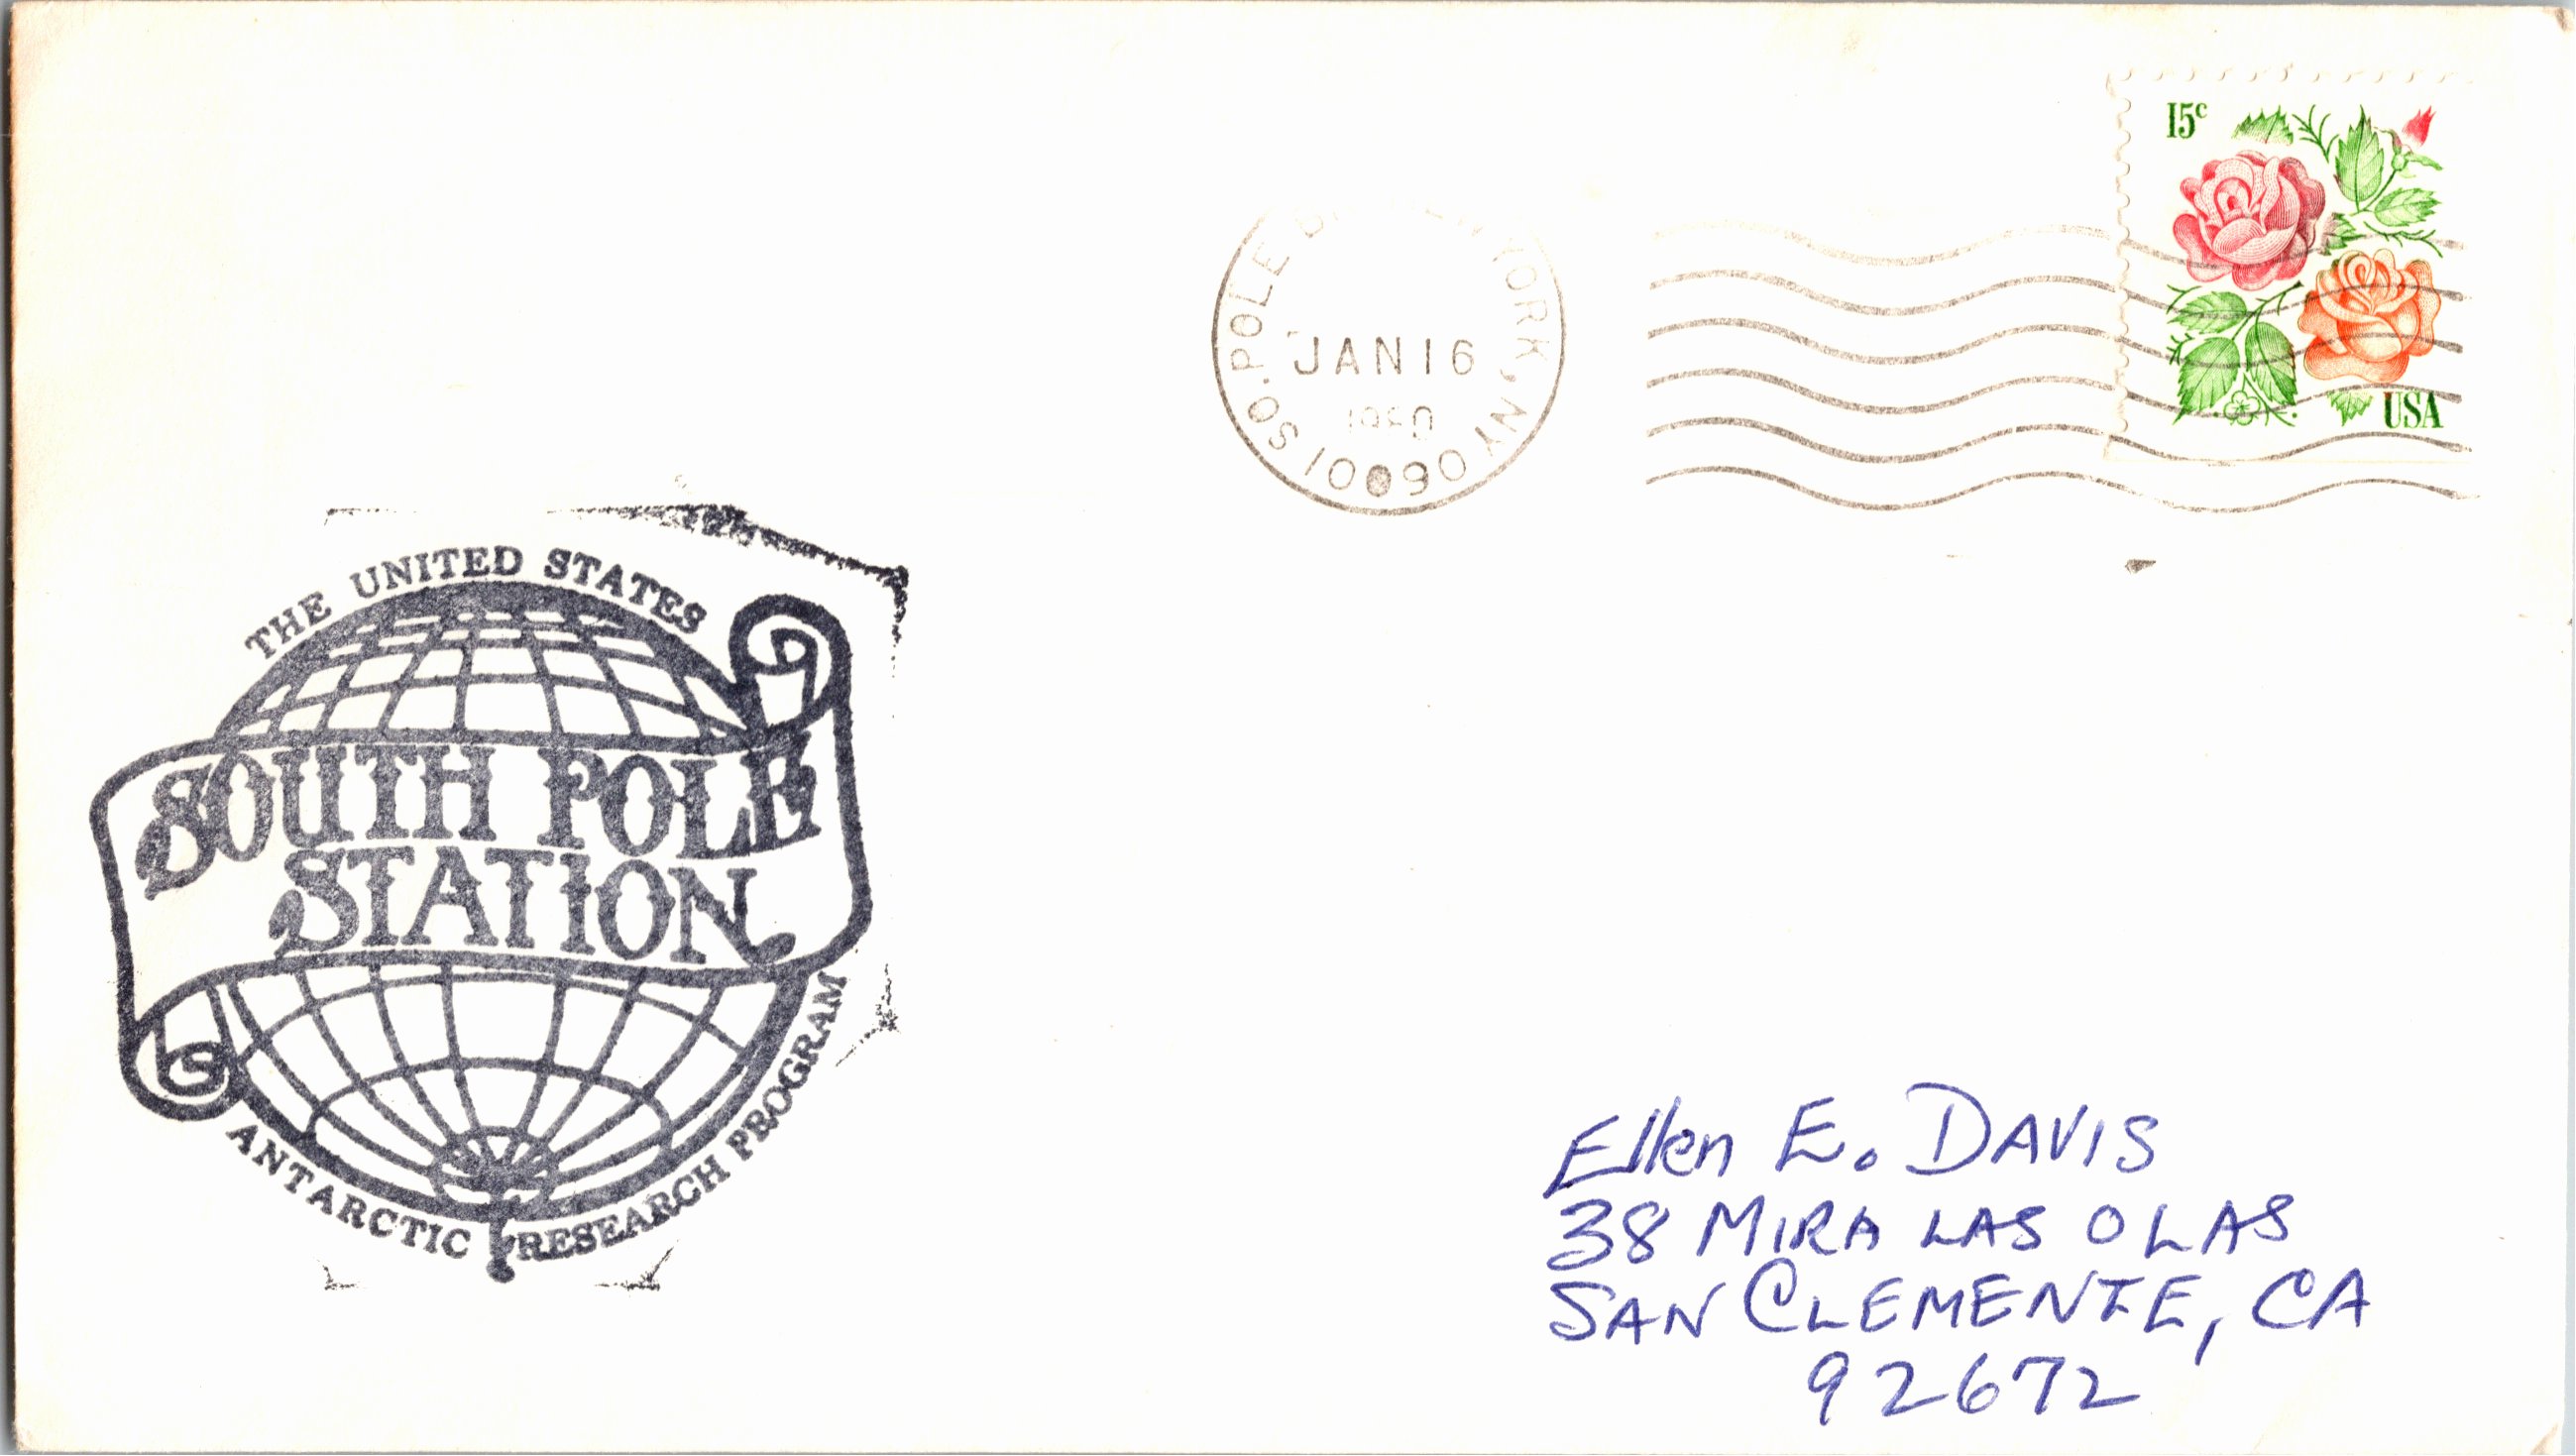 15c
USA
SO. POLE YORK, NY 09001
JAN 16
1980
THE UNITED STATES
SOUTH POLE
STATION
ANTARCTIC RESEARCH PROGRAM
Ellen E. DAVIS
38 MIRA LAS OLAS
SAN CLEMENTE, CA
92672